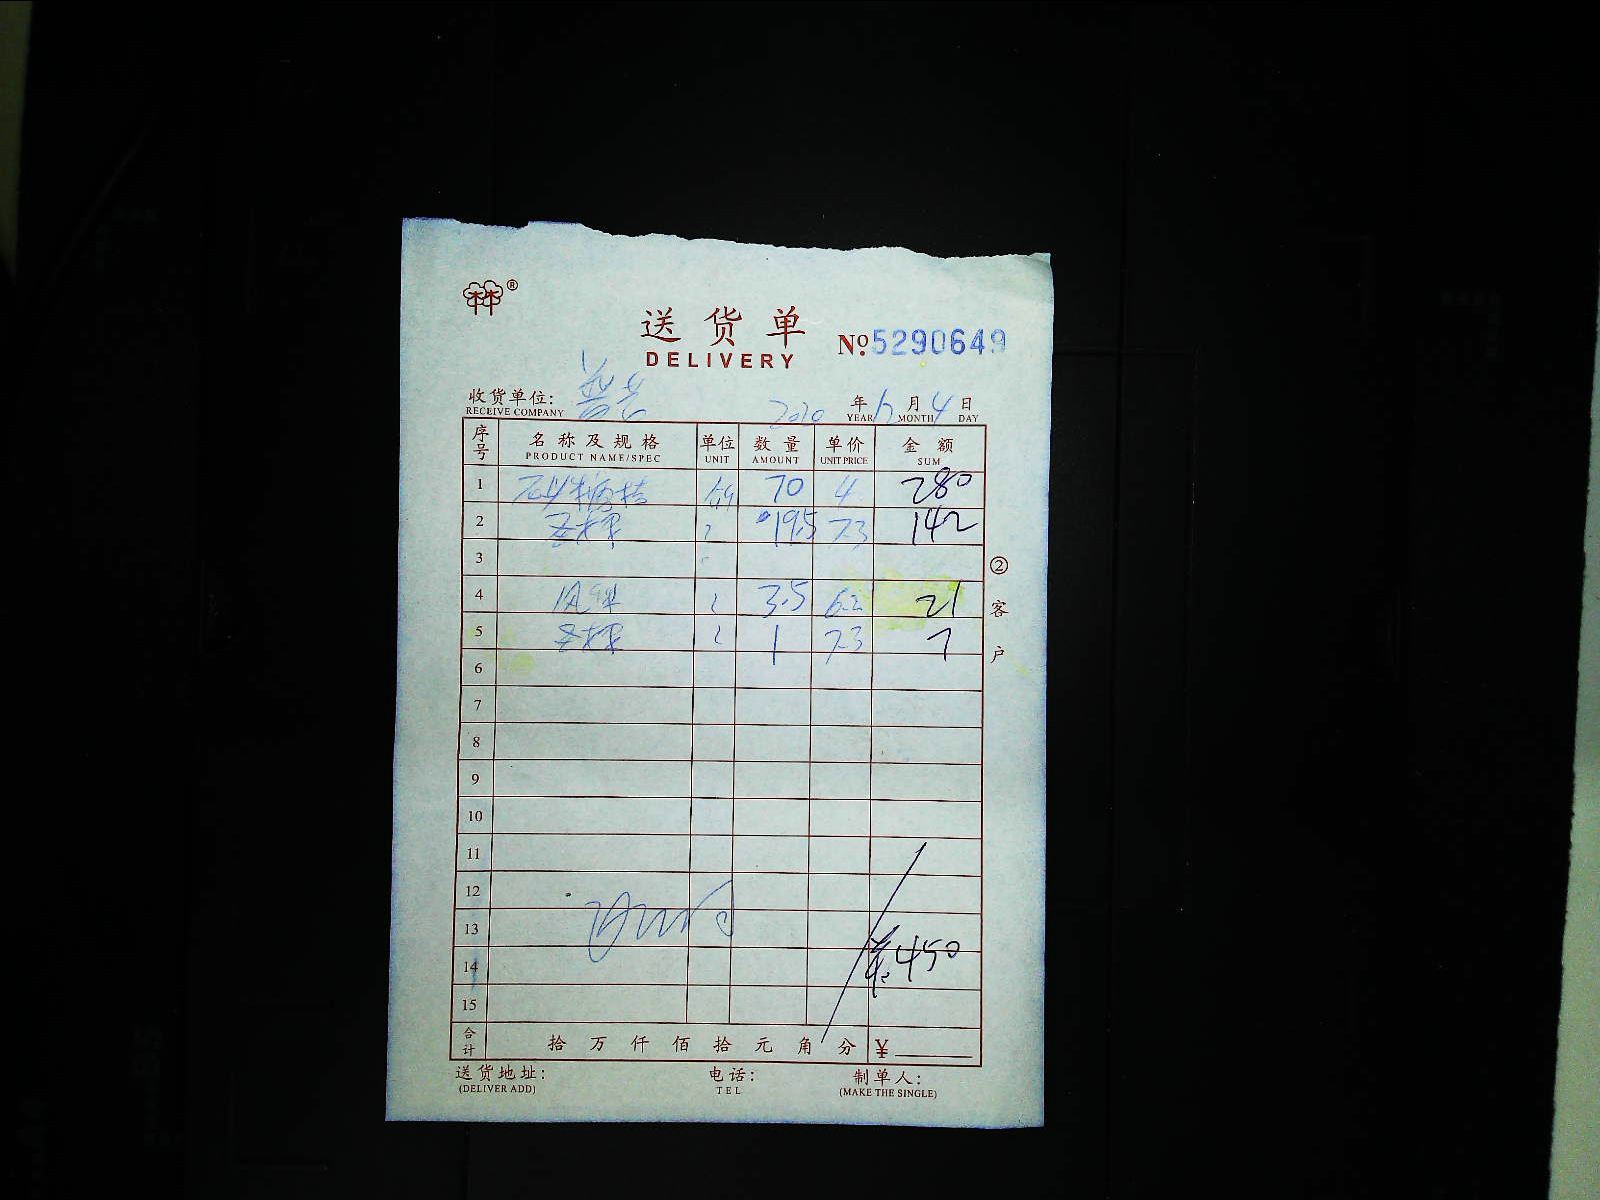 林®
送货单
DELIVERY
No.5290649
收货单位: 普 2020 年 12 月 4 日
RECEIVE COMPANY YEAR MONTH DAY
序号 名称及规格 单位 数量 单价 金额
PRODUCT NAME/SPEC UNIT AMOUNT UNIT PRICE SUM
1 70 4 280
2 19.5 7.3 142
3
4 3.5 6.2 21
5 1 7.3 7
6
7
8
9
10
11
12
13
14 450
15
合计 拾 万 仟 佰 拾 元 角 分 ¥
②客户
送货地址: 电话: 制单人:
(DELIVER ADD) TEL (MAKE THE SINGLE)